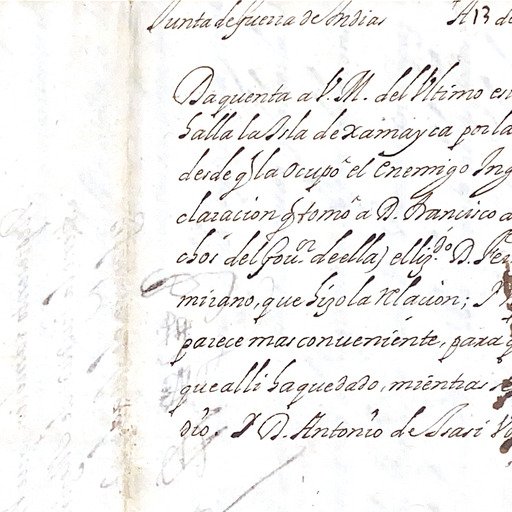 Junta de guerra de Indias A 13 de
Da quenta a V. M. del Ultimo es
halla la Isla de xamayca por la
desde q̃ la ocupo el Enemigo Ing
claracion q̃ tomo a D. Francisco a
chos del Gouor. de ella) el ligdo. D. Fer
mirano, que hizo la relacion; I
parece mas conueniente, para q
que alli ha quedado, mientras s
dio. I D. Antonio de Isasi V